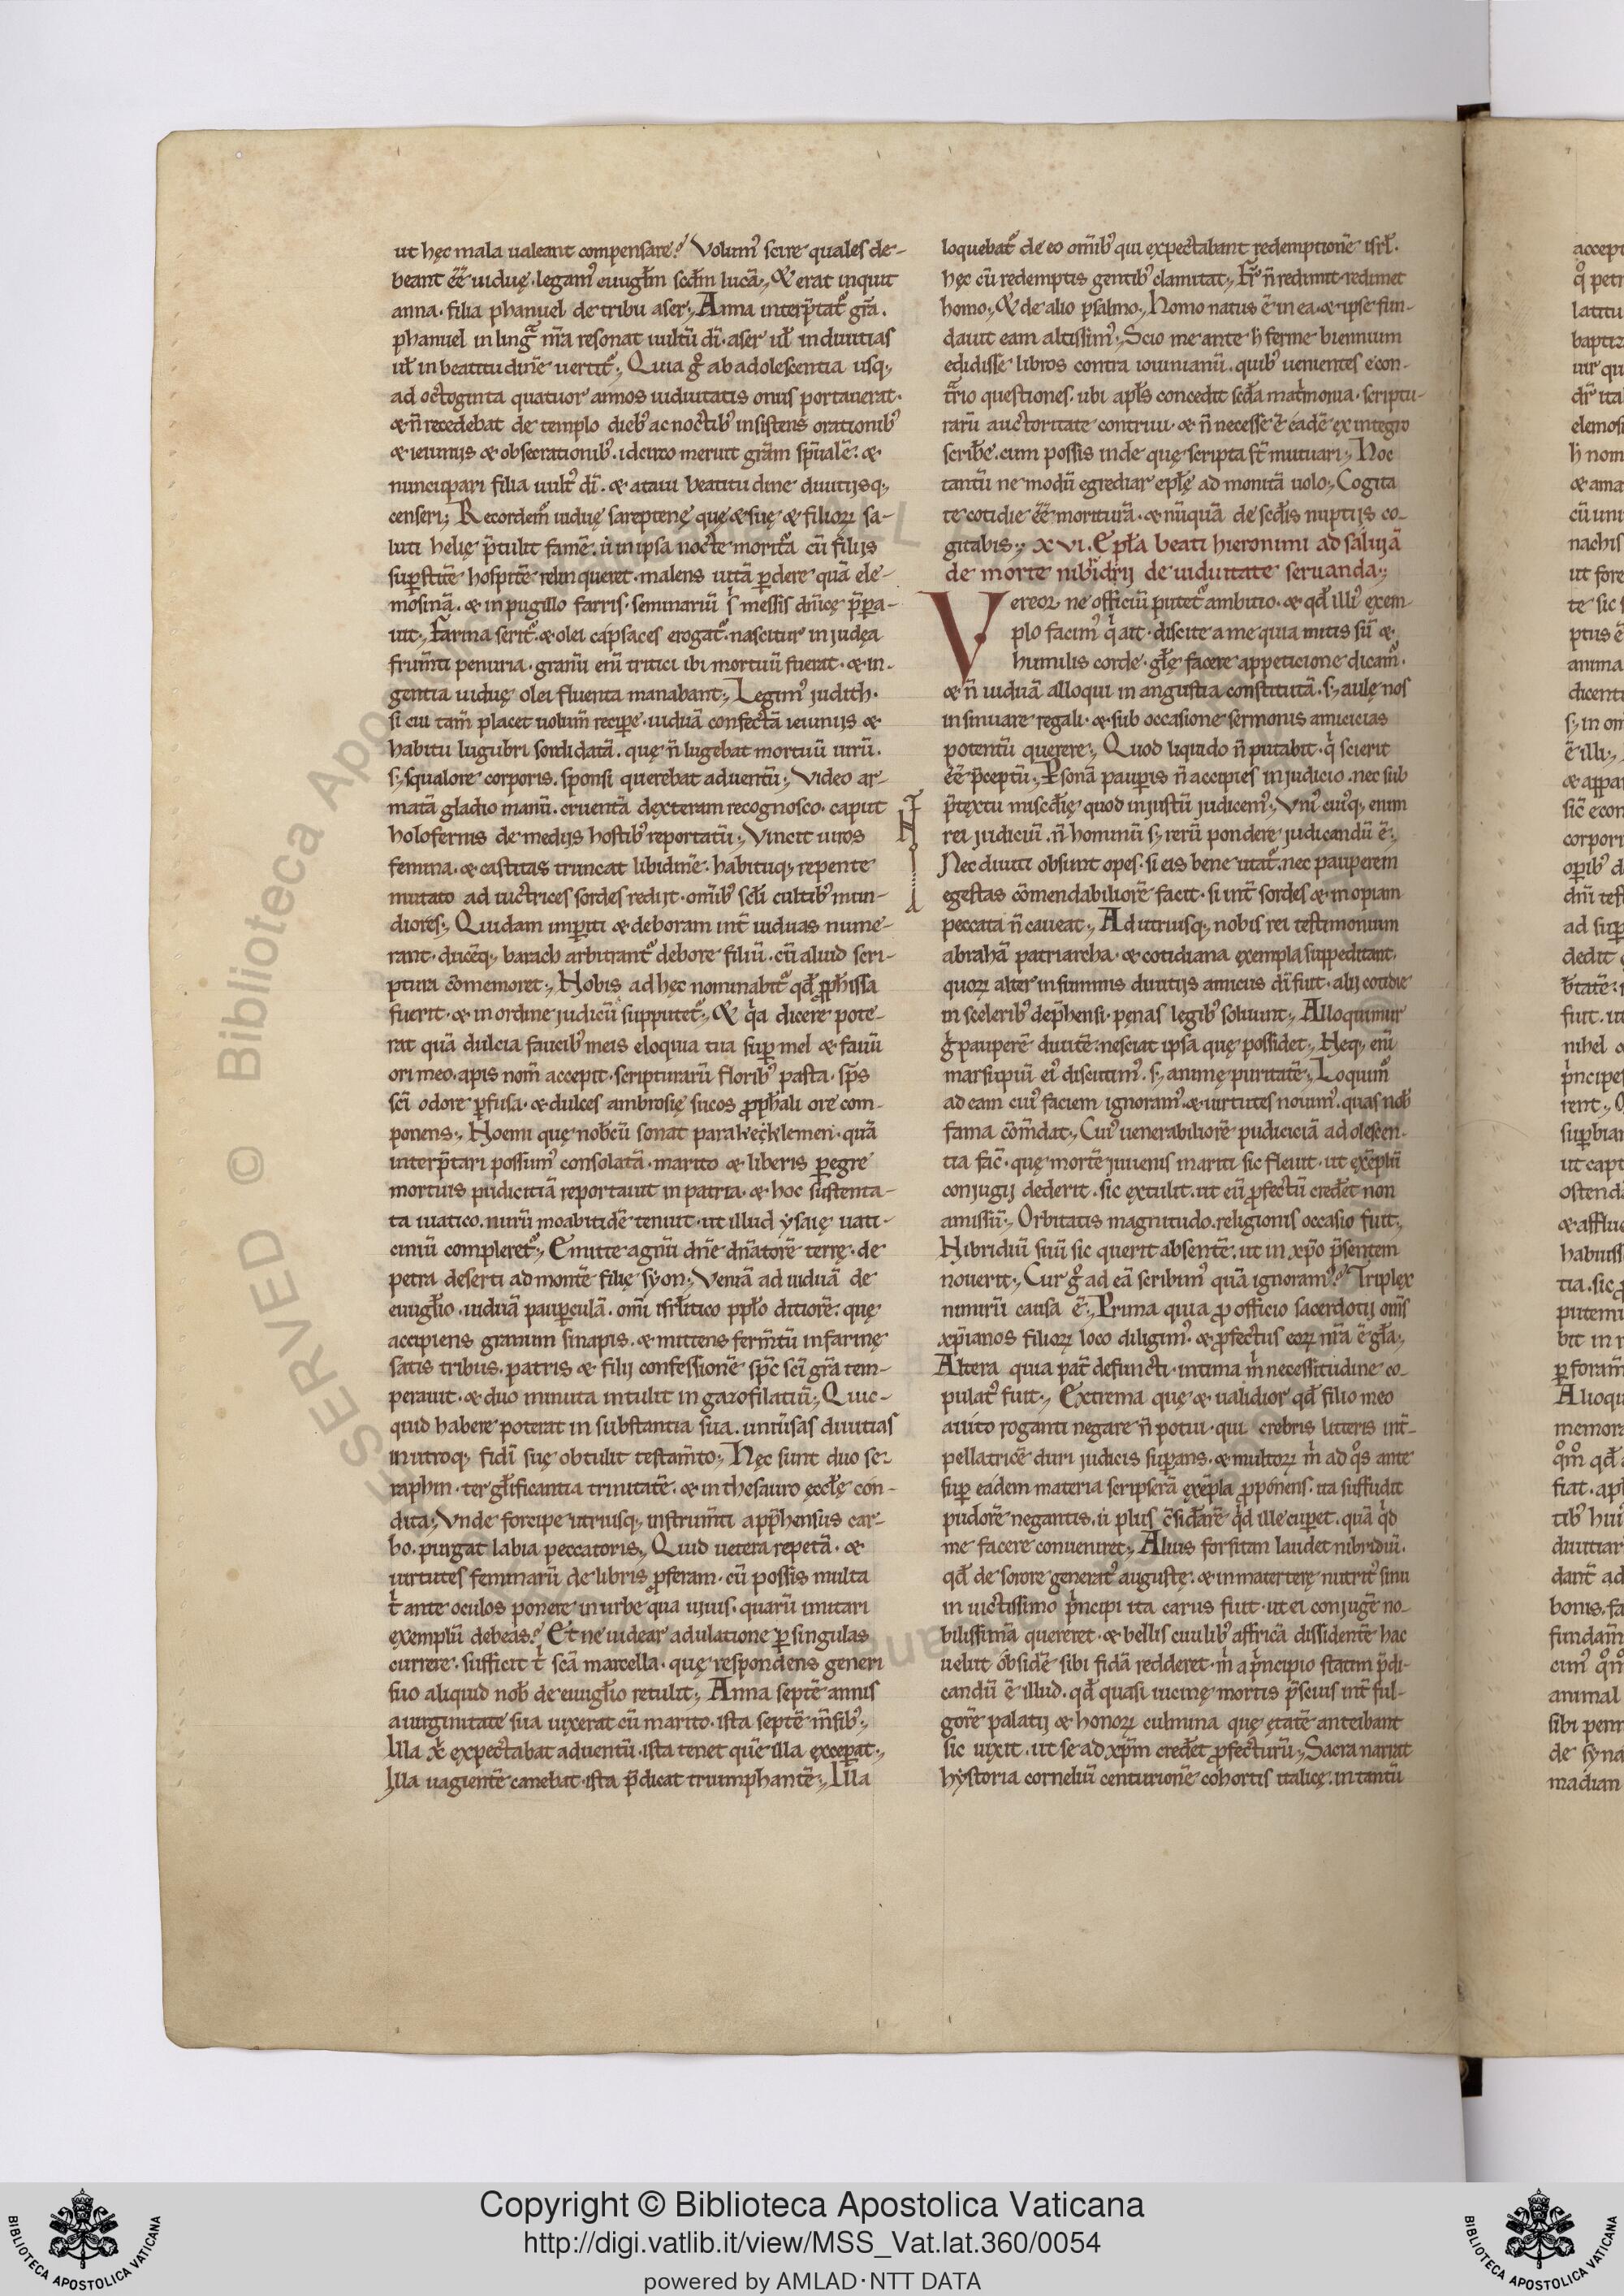 ut hęc mala ualeant compensare? Volum᷒ scire quales de-
beant ee͂ uiduę. legam᷒ euuḡłm scd̄m lucā. & erat inquit
anna. filia phanuel de tribu aser. Anna interp̄tat᷒ gr̄a.
phanuel in lingᷓ nr̄a resonat uultū dī. aser uł in diuitias
uł in beatitudinē uertit᷒. Quia gͦ ab adolescentia usq;
ad octoginta quatuor annos uiduitatis onus portauerat.
& n̄ recedebat de templo dieb᷒ ac noctib᷒ insistens orationib᷒
& ieiuniis & obsecrationib᷒. idcirco meruit grām sp̄ualē. &
nuncupari filia uult᷒ dī. & ataui beatitudine diuitijsq;
censeri; Recordem᷒ uiduę sareptenę quę & suę & filioꝝ sa-
luti helię p̄tulit famē. ut in ipsa nocte moritᷓa cū filijs
sup̱stitē hospitē relinqueret. malens uitā p̱dere quā ele-
mosinā. & in pugillo farris. seminariū sⁱ messis dn̄icę p̄pa-
uit; Farina serit᷒. & olei capsaces erogat᷒. nascitur in judęa
frum̄ti penuria. granū enī tritici ibi mortuū fuerat. & in-
gentia uiduę olei fluenta manabant; Legim᷒ judith.
si cui tam̄ placet uolum̄ recipe. uiduā confectā ieiunijs &
habitu lugubri sordidatā. quę n̄ lugebat mortuū uirū.
s; squalore corporis. sponsi querebat aduentū; Video ar-
matā gladio manū. cruentā dexteram recognosco. caput
holofernis de medijs hostib᷒ reportatū; Vincit uiros
femina. & castitas truncat libidinē. habituq; repente
mutato ad uictrices sordes redijt. omīb᷒ scłi cultib᷒ mun-
diores; Quidam imp̱iti & deboram int̄ uiduas nume-
rant. ducēq; barach arbitrant᷒ debore filiū. cū aliud scri-
ptura cōmemoret; Nobis ad hęc nominabit᷒ qđ ꝓphissa
fuerit. & in ordine judicū supputet᷒; & qⁱa dicere pote-
rat quā dulcia faucib᷒ meis eloquia tua sup̱ mel & fauū
ori meo. apis nom̄ accepit. scripturarū florib᷒ pasta. sp̄s
scī odore p̱fusa. & dulces ambrosię sucos ꝓphali ore com-
ponens; Noemi quę nobcū sonat parakęcklemen. quā
interp̄tari possum᷒ consolatā. marito & liberis p̱egre
mortuis pudicitiā reportauit in patria. & hoc sustenta-
ta uiatico. nurū moabitidē tenuit. ut illud ysaię uati-
ciniū compleret᷒; Emitte agnū dn̄e dn̄atorē terrę. de
petra deserti ad montē filię syon; Veniā ad uiduā de
euuḡłio. uiduā paup̱culā. omī isrl̄itico pplo ditiorē. quę
accipiens granum sinapis. & mittens ferm̄tū in farinę
satis tribus. patris & filij confessionē sp̄c scī gr̄a tem-
perauit. & duo minuta intulit in gazofilatiū; Quic-
quid habere poterat in substantia sua. uniūsas diuitias
in utroq; fidī suę obtulit testam̄to; Hęc sunt duo se-
raphin. ter głificantia trinitatē. & in thesauro ęccłę con-
dita; Vnde forcipe utriusq; instrum̄ti app̄hensus car-
bo. purgat labia peccatoris; Quid uetera repetā. &
uirtutes feminarū de libris ꝓferam. cū possis multa
tⁱ ante oculos ponere in urbe qua uiuis. quarū imitari
exemplū debeas? Et ne uidear adulatione p̱ singulas
currere. sufficit tⁱ scā marcella. quę respondens generi
suo aliquid nob᷒ de euuḡłio retulit; Anna septē annis
a uirginitate sua uixerat cū marito. ista septē m̄sib᷒;
Illa xp̄c expectabat aduentū. ista tenet quē illa excep̱at;
Illa uagientē canebat. ista p̄dicat triumphantē; Illa
loquebat᷒ de eo omīb᷒ qui expectabant redemptionē isrl̄.
hęc cū redemptis gentib᷒ clamitat; Fr̄ n̄ redimit. redimet
homo; & de alio psalmo; Homo natus ē in ea. & ipse fun-
dauit eam altissim᷒; Scio me ante h̄ ferme biennium
edidisse libros contra iouinianū. quib᷒ uenientes e con-
tᷓrio questiones. ubi apłs concedit scđa matⁱmonia. scriptu-
rarū auctoritate contriui. & n̄ necesse ē eadē ex integro
scribe. cum possis inde quę scripta st̄ mutuari; Hoc
tantū ne modū egrediar epłę ad monitā uolo; Cogita
te cotidie ee͂ moriturā. & nūquā de scđis nuptijs co-
gitabis; XVI. Epła beati hieronimi ad saluijā
de morte nibⁱdrij de uiduitate seruanda;
Vereoꝝ ne officiū putet᷒ ambitio. & qđ illi᷒ exem
plo facim᷒ qⁱ ait. discite a me quia mitis sū &
humilis corde. głę facere appeticione dicam᷒.
& n̄ uiduā alloqui in angustia constitutā. s; aulę nos
insinuare regali. & sub occasione sermonis amicicias
potentū querere; Quod liquido n̄ putabit. qⁱ scierit
ee͂ p̄ceptū; P̱sonā paup̱is n̄ accipies in judicio. nec sub
p̄textu miscđię quod injustū judicem᷒; Vni᷒ cui᷒q; enim
rei judiciū. n̄ hominū s; rerū pondere judicandū ē;
Nec diuiti obsunt opes. si eis bene utat᷒. nec pauperem
egestas cōmendabiliorē facit. si int̄ sordes & inopiam
peccata n̄ caueat; Ad utriusq; nobis rei testimonium
abrahā patriarcha. & cotidiana exempla suppeditant.
quoꝝ alter in summis diuitijs amicus dī fuit. alij cotidie
in scelerib᷒ dep̄hensi. pęnas legib᷒ soluunt; Alloquimur
gͦ pauperē diuitē. nesciat ipsa quę possidet; Neq; enī
marsupiū ei᷒ discutim᷒. s; animę puritatē; Loquim᷒
ad eam cui᷒ faciem ignoram᷒. & uirtutes nouim᷒. quas nob᷒
fama cōm̄dat; Cui᷒ uenerabiliorē pudiciciā adolescen-
tia fac̄. quę mortē juuenis mariti sic fleuit. ut exēplū
conjugij dederit. sic extulit. ut eū ꝓfectū credet non
amissū; Orbitatis magnitudo. religionis occasio fuit;
Nibridiū suū sic querit absentē. ut in xp̄o p̄sentem
nouerit; Cur gͦ ad eā scribim᷒ quā ignoram᷒? Triplex
nimirū causa ē; Prima quia ꝓ officio sacerdotij om̄s
xp̄ianos filioꝝ loco diligim᷒. & ꝓfectus eoꝝ nr̄a ē gła;
Altera quia pat̄ defuncti. intima mⁱ necessitudine co-
pulat᷒ fuit; Extrema quę & ualidior qđ filio meo
auito roganti negare n̄ potui. qui crebris litteris int̄-
pellatricē duri judicis sup̱ans. & multoꝝ mⁱ ad qͦs ante
sup̱ eadem materia scripserā exēpla ꝓponens. ita suffudit
pudorē negantis. ut plus c̄siđarē qⁱd ille cup̱et. quā qⁱd
me facere conueniret; Alius forsitan laudet nibridiū.
qđ de sorore generat᷒ augustę. & in materterę nutrit᷒ sinu
inuictissimo pⁱncipi ita carus fuit. ut ei conjugē no-
bilissimā quereret. & bellis ciuilib᷒ affricā dissidentē hac
uelut obsidē sibi fidā redderet. mⁱ a pⁱncipio statim p̄di-
candū ē illud. qđ quasi uicinę mortis p̄scius int̄ ful-
gorē palatij & honoꝝ culmina quę ętatē anteibant
sic uixit. ut se ad xp̄m credet ꝓfecturū; Sacra narrat
hystoria corneliū centurionē cohortis italicę. in tantū
Copyright © Biblioteca Apostolica Vaticana
http://digi.vatlib.it/view/MSS_Vat.lat.360/0054
powered by AMLAD·NTT DATA
BIBLIOTECA APOSTOLICA VATICANA
BIBLIOTECA APOSTOLICA VATICANA